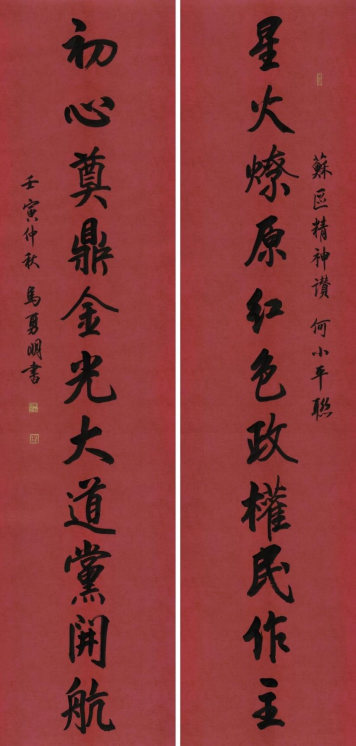 蘇區精神讚 何小平聯
星火燎原紅色政權民作主
初心奠鼎金光大道黨開航
壬寅仲秋 馬勇明書